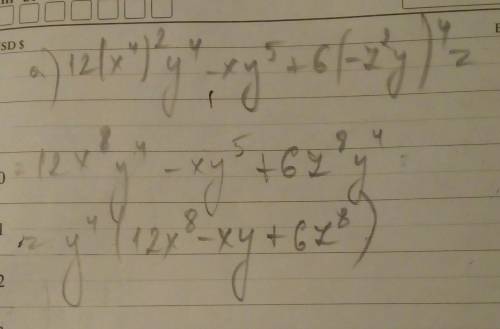 SD $
a) 12(x⁴)²y⁴ - xy⁵ + 6(-z²y)⁴ =
= 12x⁸y⁴ - xy⁵ + 6z⁸y⁴ =
= y⁴(12x⁸ - xy + 6z⁸)
0
1
2